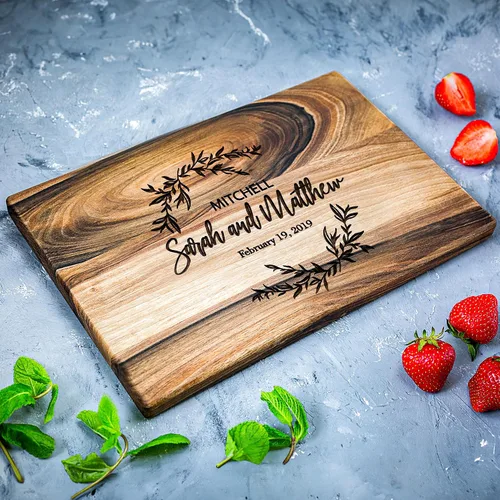 MITCHELL
Sarah and Matthew
February 19, 2019